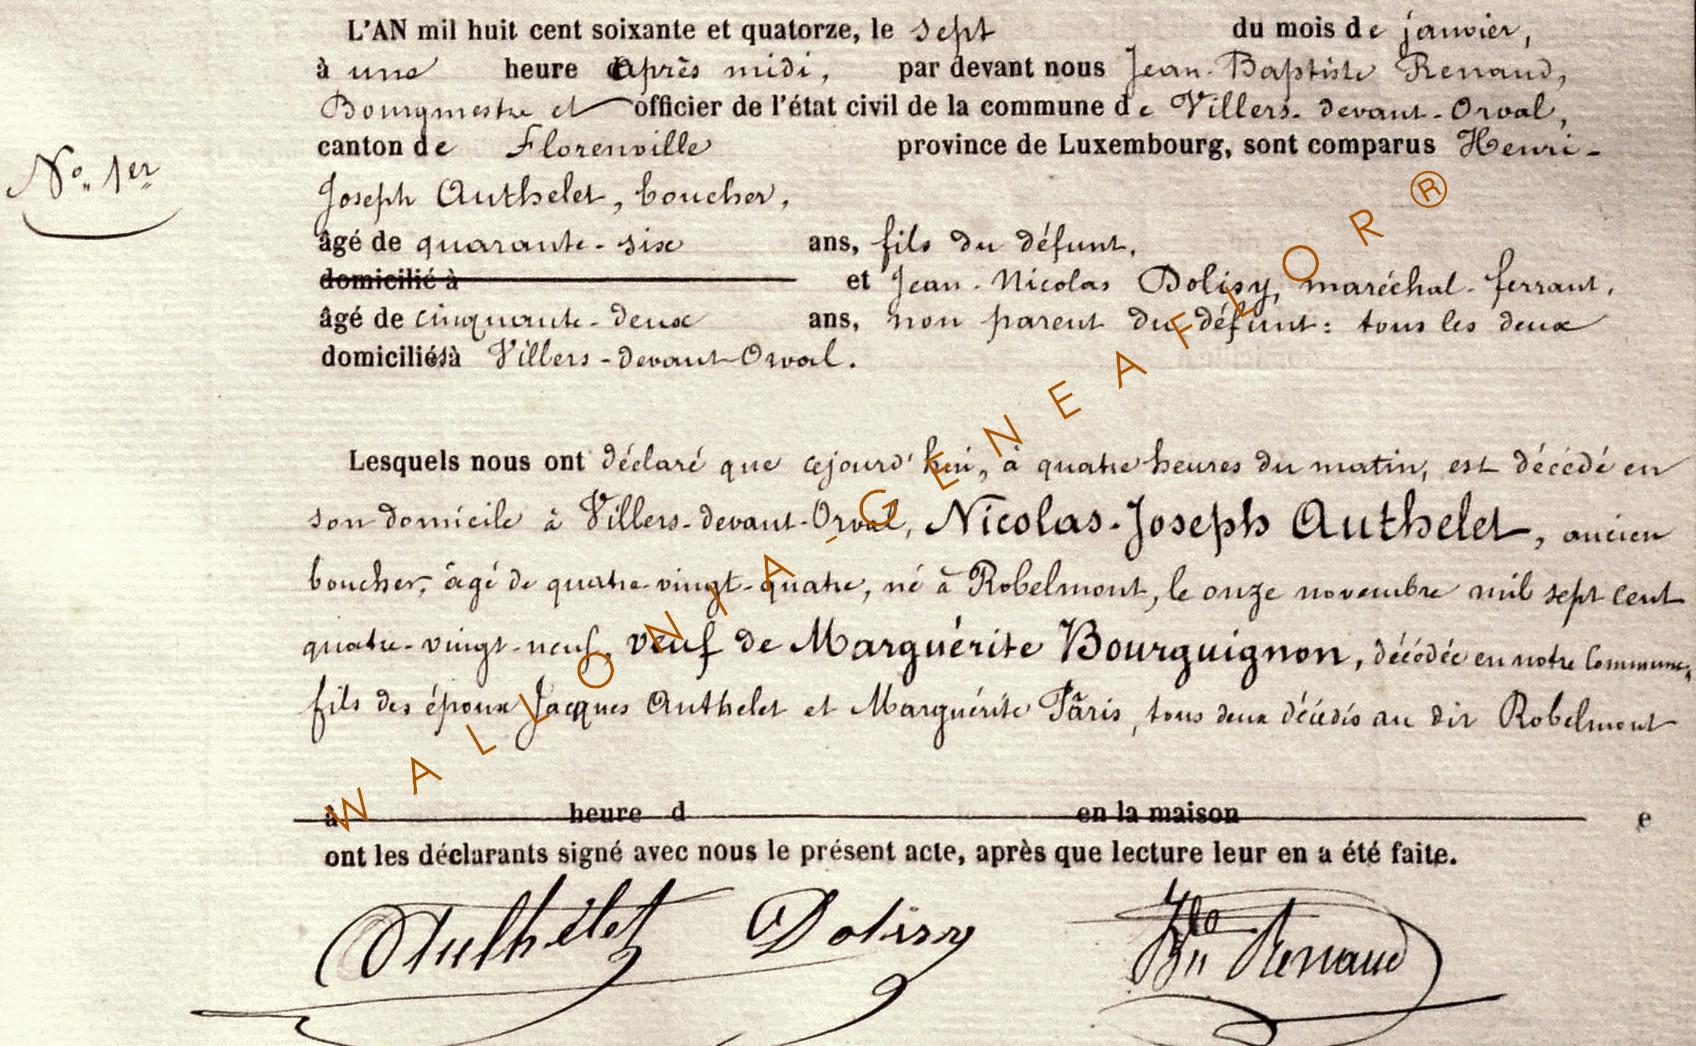 L'AN mil huit cent soixante et quatorze, le sept du mois de janvier,
à une heure après midi, par devant nous Jean-Baptiste Renaud,
Bourgmestre et officier de l'état civil de la commune de Villers-devant-Orval,
canton de Florenville province de Luxembourg, sont comparus Henri-
No. 1er
Joseph Authelet, boucher,
âgé de quarante-six ans, fils du défunt,
domicilié à et Jean-Nicolas Dolisy, maréchal-ferrant,
âgé de cinquante-deux ans, non parent du défunt: tous les deux
domiciliés à Villers-devant-Orval.
Lesquels nous ont déclaré que cejourd'hui, à quatre heures du matin, est décédé en
son domicile à Villers-devant-Orval, Nicolas-Joseph Authelet, ancien
boucher, âgé de quatre-vingt-quatre, né à Robelmont, le onze novembre mil sept cent
quatre-vingt-neuf, veuf de Marguérite Bourguignon, décédée en notre commune,
fils des époux Jacques Authelet et Marguérite Pâris, tous deux décédés au dit Robelmont
à heure d en la maison e
ont les déclarants signé avec nous le présent acte, après que lecture leur en a été faite.
Authélet Dolisy Jn Bte Renaud
WALLONIA-GENEAFLOR®